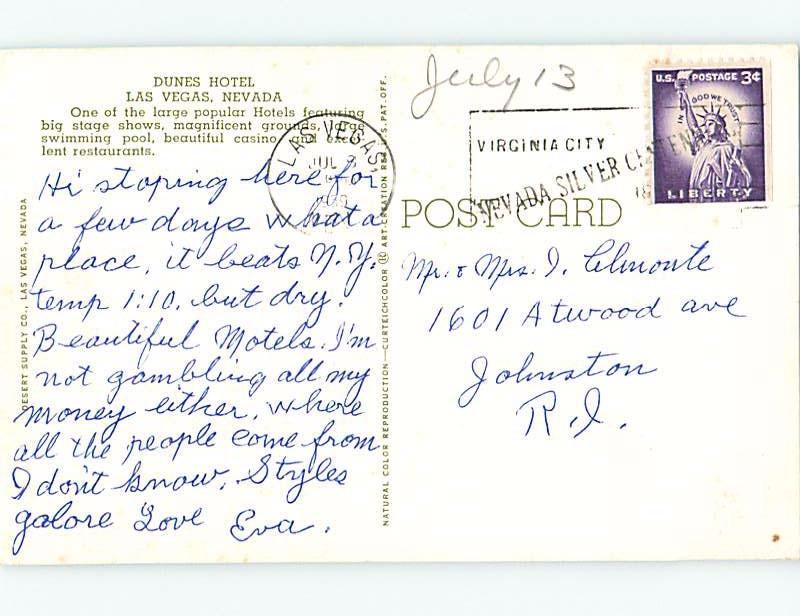 DUNES HOTEL
LAS VEGAS, NEVADA
One of the large popular Hotels featuring
big stage shows, magnificent grounds, large
swimming pool, beautiful casino and excel-
lent restaurants.
Hi stoping here for
a few days what a
place, it beats N.Y.
temp 1:10, but dry.
Beautiful Motels. I'm
not gambling all my
money either, where
all the people come from
I don't know, Styles
galore Love Eva.
DESERT SUPPLY CO., LAS VEGAS, NEVADA
NATURAL COLOR REPRODUCTION—CURTEICHCOLOR ® ART-CREATION REG. U.S. PAT. OFF.
LAS VEGAS,
JUL
July 13
VIRGINIA CITY
NEVADA SILVER CENTENNIAL
U.S. POSTAGE 3¢
IN GOD WE TRUST
LIBERTY
POST CARD
Mr. & Mrs. I. Almonte
1601 Atwood ave
Johnston
R.I.